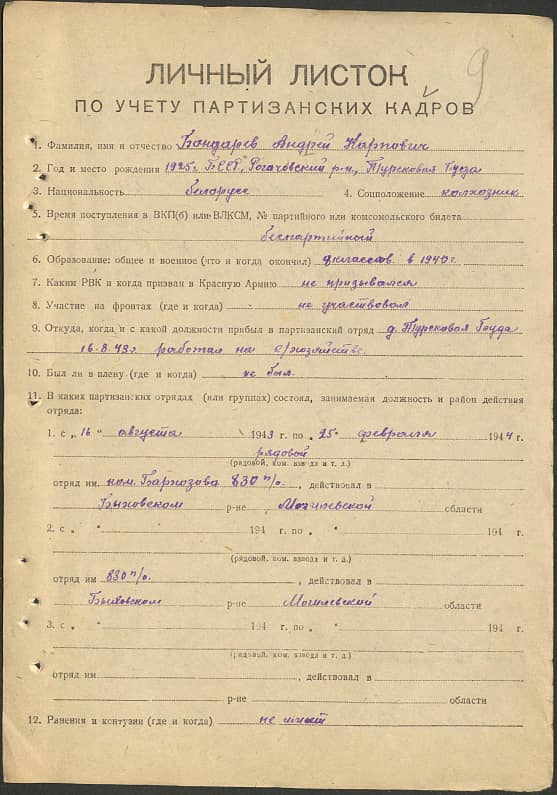 9
ЛИЧНЫЙ ЛИСТОК
ПО УЧЕТУ ПАРТИЗАНСКИХ КАДРОВ
1. Фамилия, имя и отчество Бондарев Андрей Карпович
2. Год и место рождения 1925г. БССР, Рогачёвский р-н, Турсковая Буда
3. Национальность белорусс 4. Соцположение колхозник
5. Время поступления в ВКП(б) или ВЛКСМ, № партийного или комсомольского билета
беспартийный
6. Образование: общее и военное (что и когда окончил) классов в 1940 г.
7. Каким РВК и когда призван в Красную Армию не призывался
8. Участие на фронтах (где и когда) не участвовал
9. Откуда, когда и с какой должности прибыл в партизанский отряд д. Турсковая Буда
16.8.43г работал на с/хозяйстве.
10. Был ли в плену (где и когда) не был.
11. В каких партизанских отрядах (или группах) состоял, занимаемая должность и район действия
отряда:
1. с „ 16 " августа 1943 г. по „ 25 " февраля 1944 г.
рядовой
(рядовой, ком. взвода и т. д.)
отряд им ком. 830 п/о. , действовал в
Быховском р-не Могилевской области
2. с „ " 194 г. по „ " 194 г.
(рядовой, ком. взвода и т. д.)
отряд им 830 п/о. , действовал в
Быховском р-не Могилевский области
3. с „ " 194 г. по „ " 194 г.
(рядовой, ком. взвода и т. д.)
отряд им. , действовал в
р-не области
12. Ранения и контузии (где и когда) не имеет